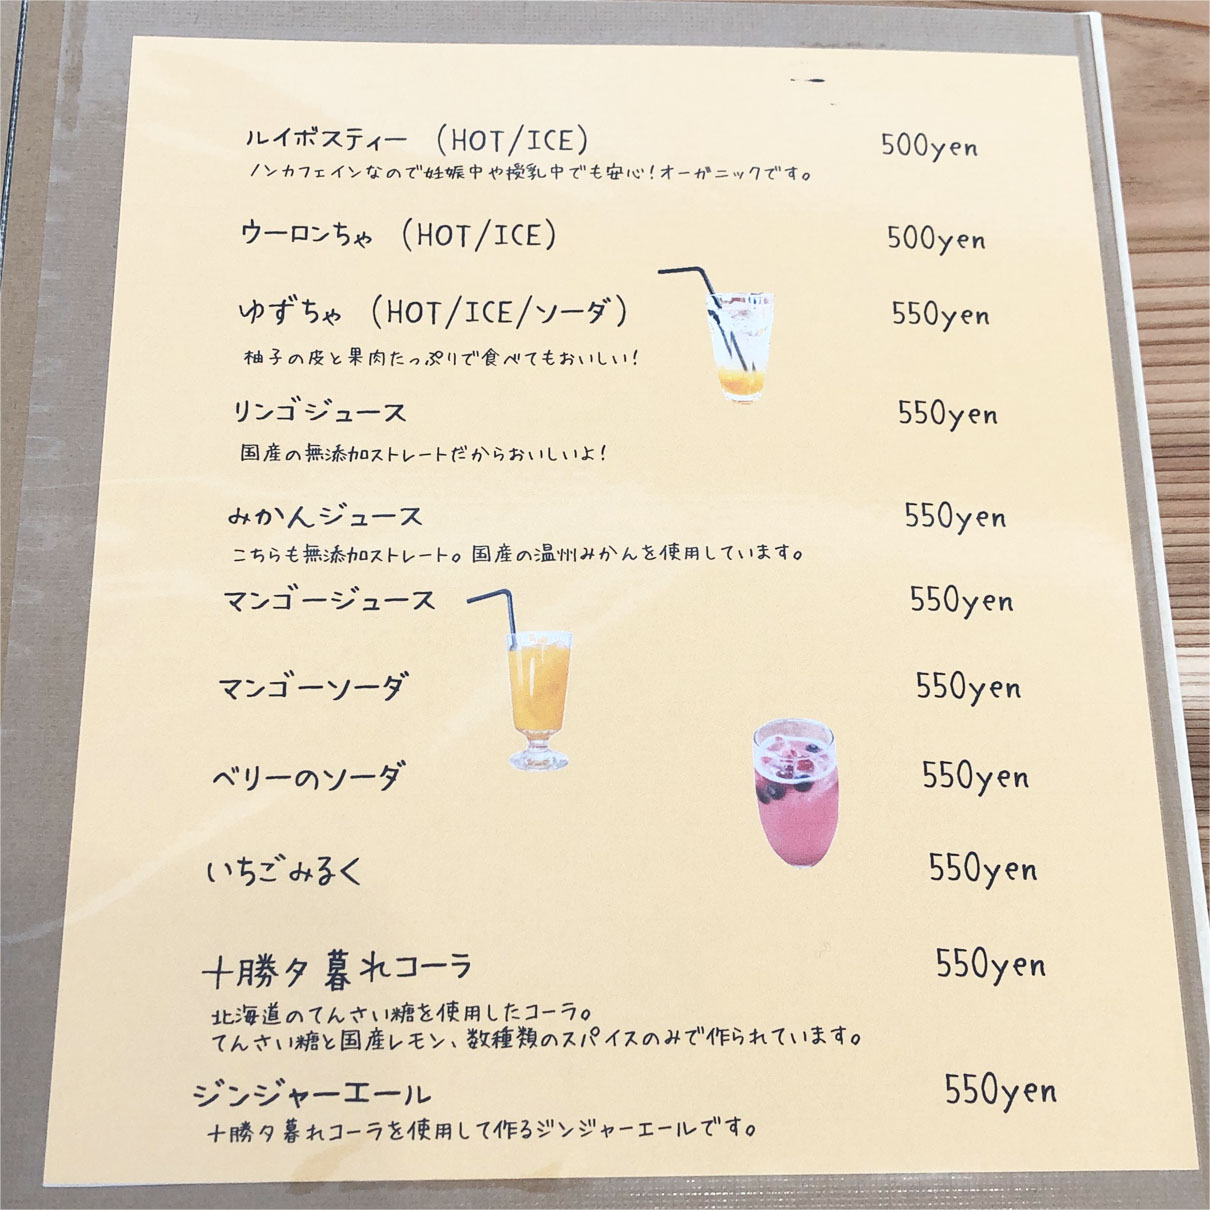 ルイボスティー (HOT/ICE) 500yen
ノンカフェインなので妊娠中や授乳中でも安心！オーガニックです。
ウーロンちゃ (HOT/ICE) 500yen
ゆずちゃ (HOT/ICE/ソーダ) 550yen
柚子の皮と果肉たっぷりで食べてもおいしい！
リンゴジュース 550yen
国産の無添加ストレートだからおいしいよ！
みかんジュース 550yen
こちらも無添加ストレート。国産の温州みかんを使用しています。
マンゴージュース 550yen
マンゴーソーダ 550yen
ベリーのソーダ 550yen
いちごみるく 550yen
十勝夕暮れコーラ 550yen
北海道のてんさい糖を使用したコーラ。
てんさい糖と国産レモン、数種類のスパイスのみで作られています。
ジンジャーエール 550yen
十勝夕暮れコーラを使用して作るジンジャーエールです。